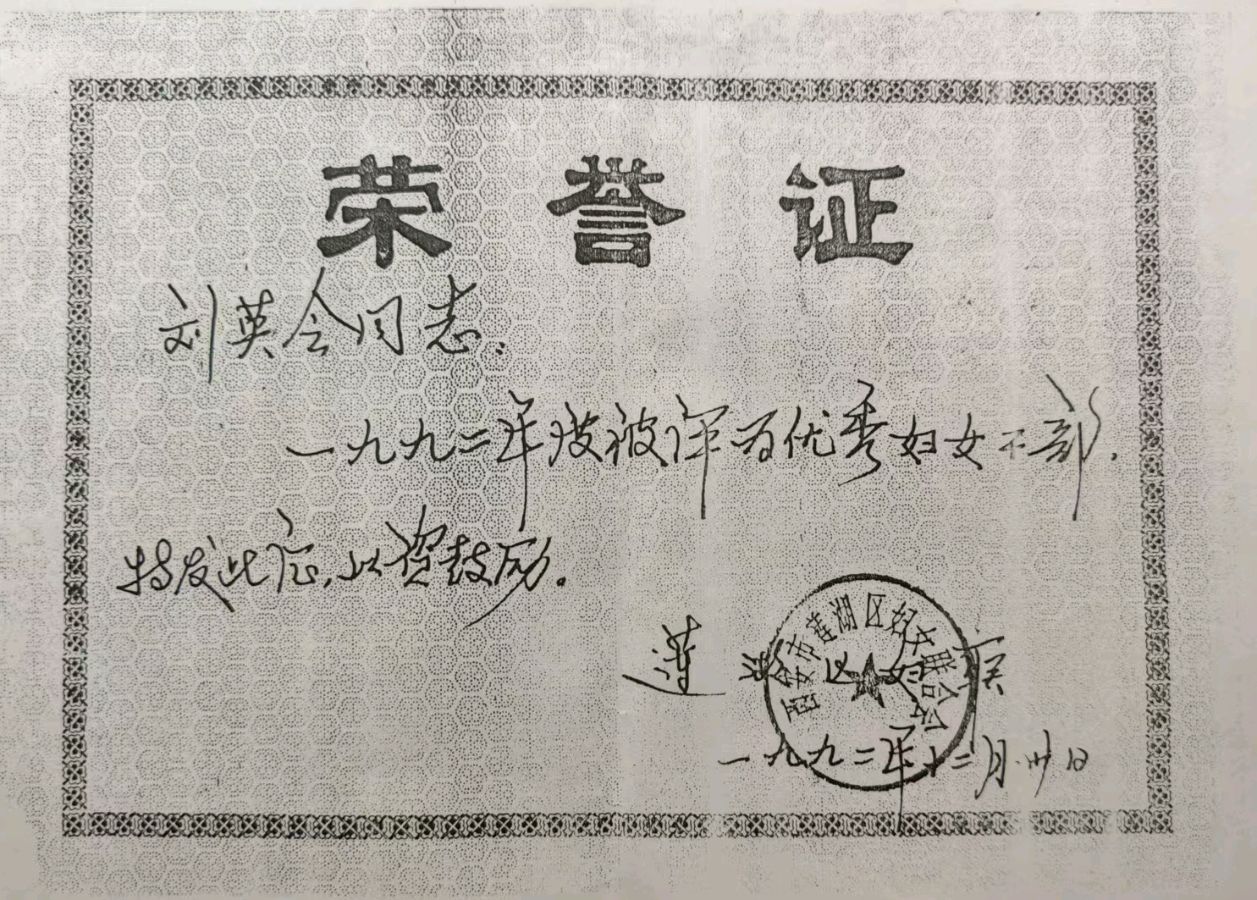 荣誉证
刘英会同志：
一九九二年度被评为优秀妇女干部，
特发此证，以资鼓励。
莲湖区妇联
西安市莲湖区妇女联合会
一九九二年十二月卅日